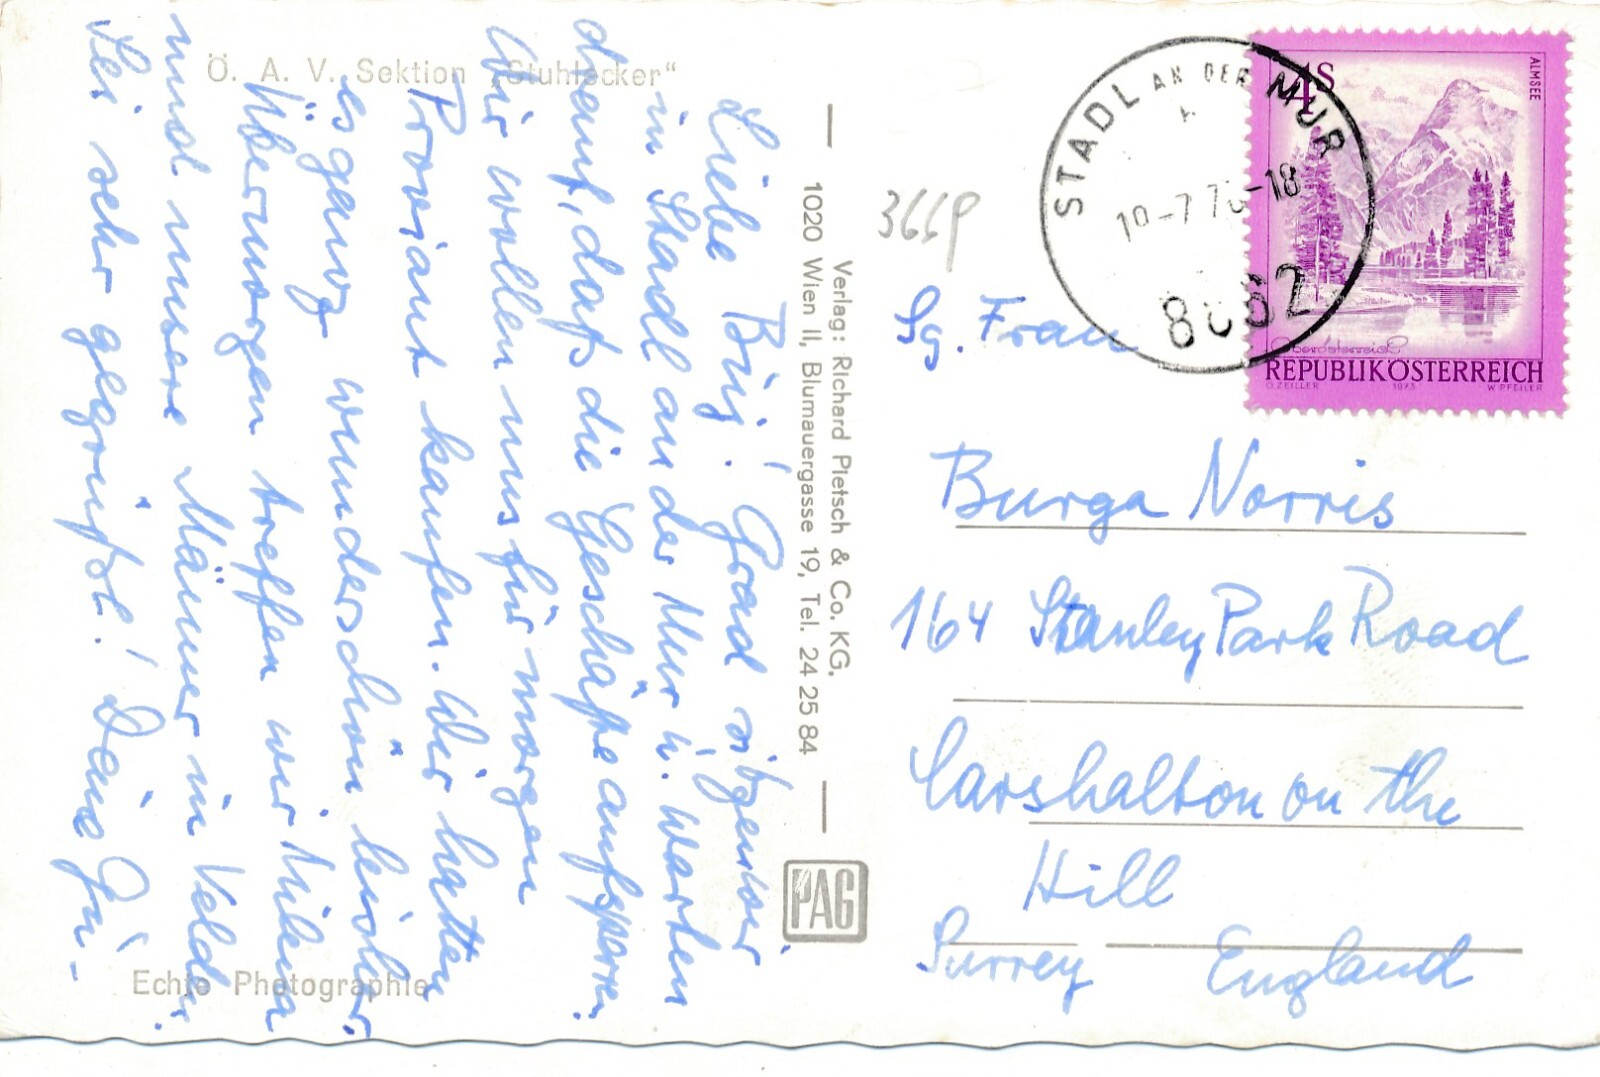 Ö. A. V. Sektion „Stuhlecker"
Liebe Burgi! Grad sitzen wir
in Stadl an der Mur u. warten
drauf, daß die Geschäfte aufsperren.
Wir wollen uns für morgen
Proviant kaufen. Wir hatten
es ganz wunderschön bisher.
Übermorgen treffen wir
und unsere Männer in Velden.
Sei sehr gegrüßt! Deine
Echte Photographie
Verlag: Richard Pietsch & Co. KG.
1020 Wien II, Blumauergasse 19, Tel. 24 25 84
PAG
3669
STADL AN DER MUR
8862
4S
ALMSEE
Oberösterreich
REPUBLIK ÖSTERREICH
O. ZEILLER 1973 W. PFEILER
Sg. Frau
Burga Norris
164 Stanley Park Road
Carshalton on the
Hill
Surrey England